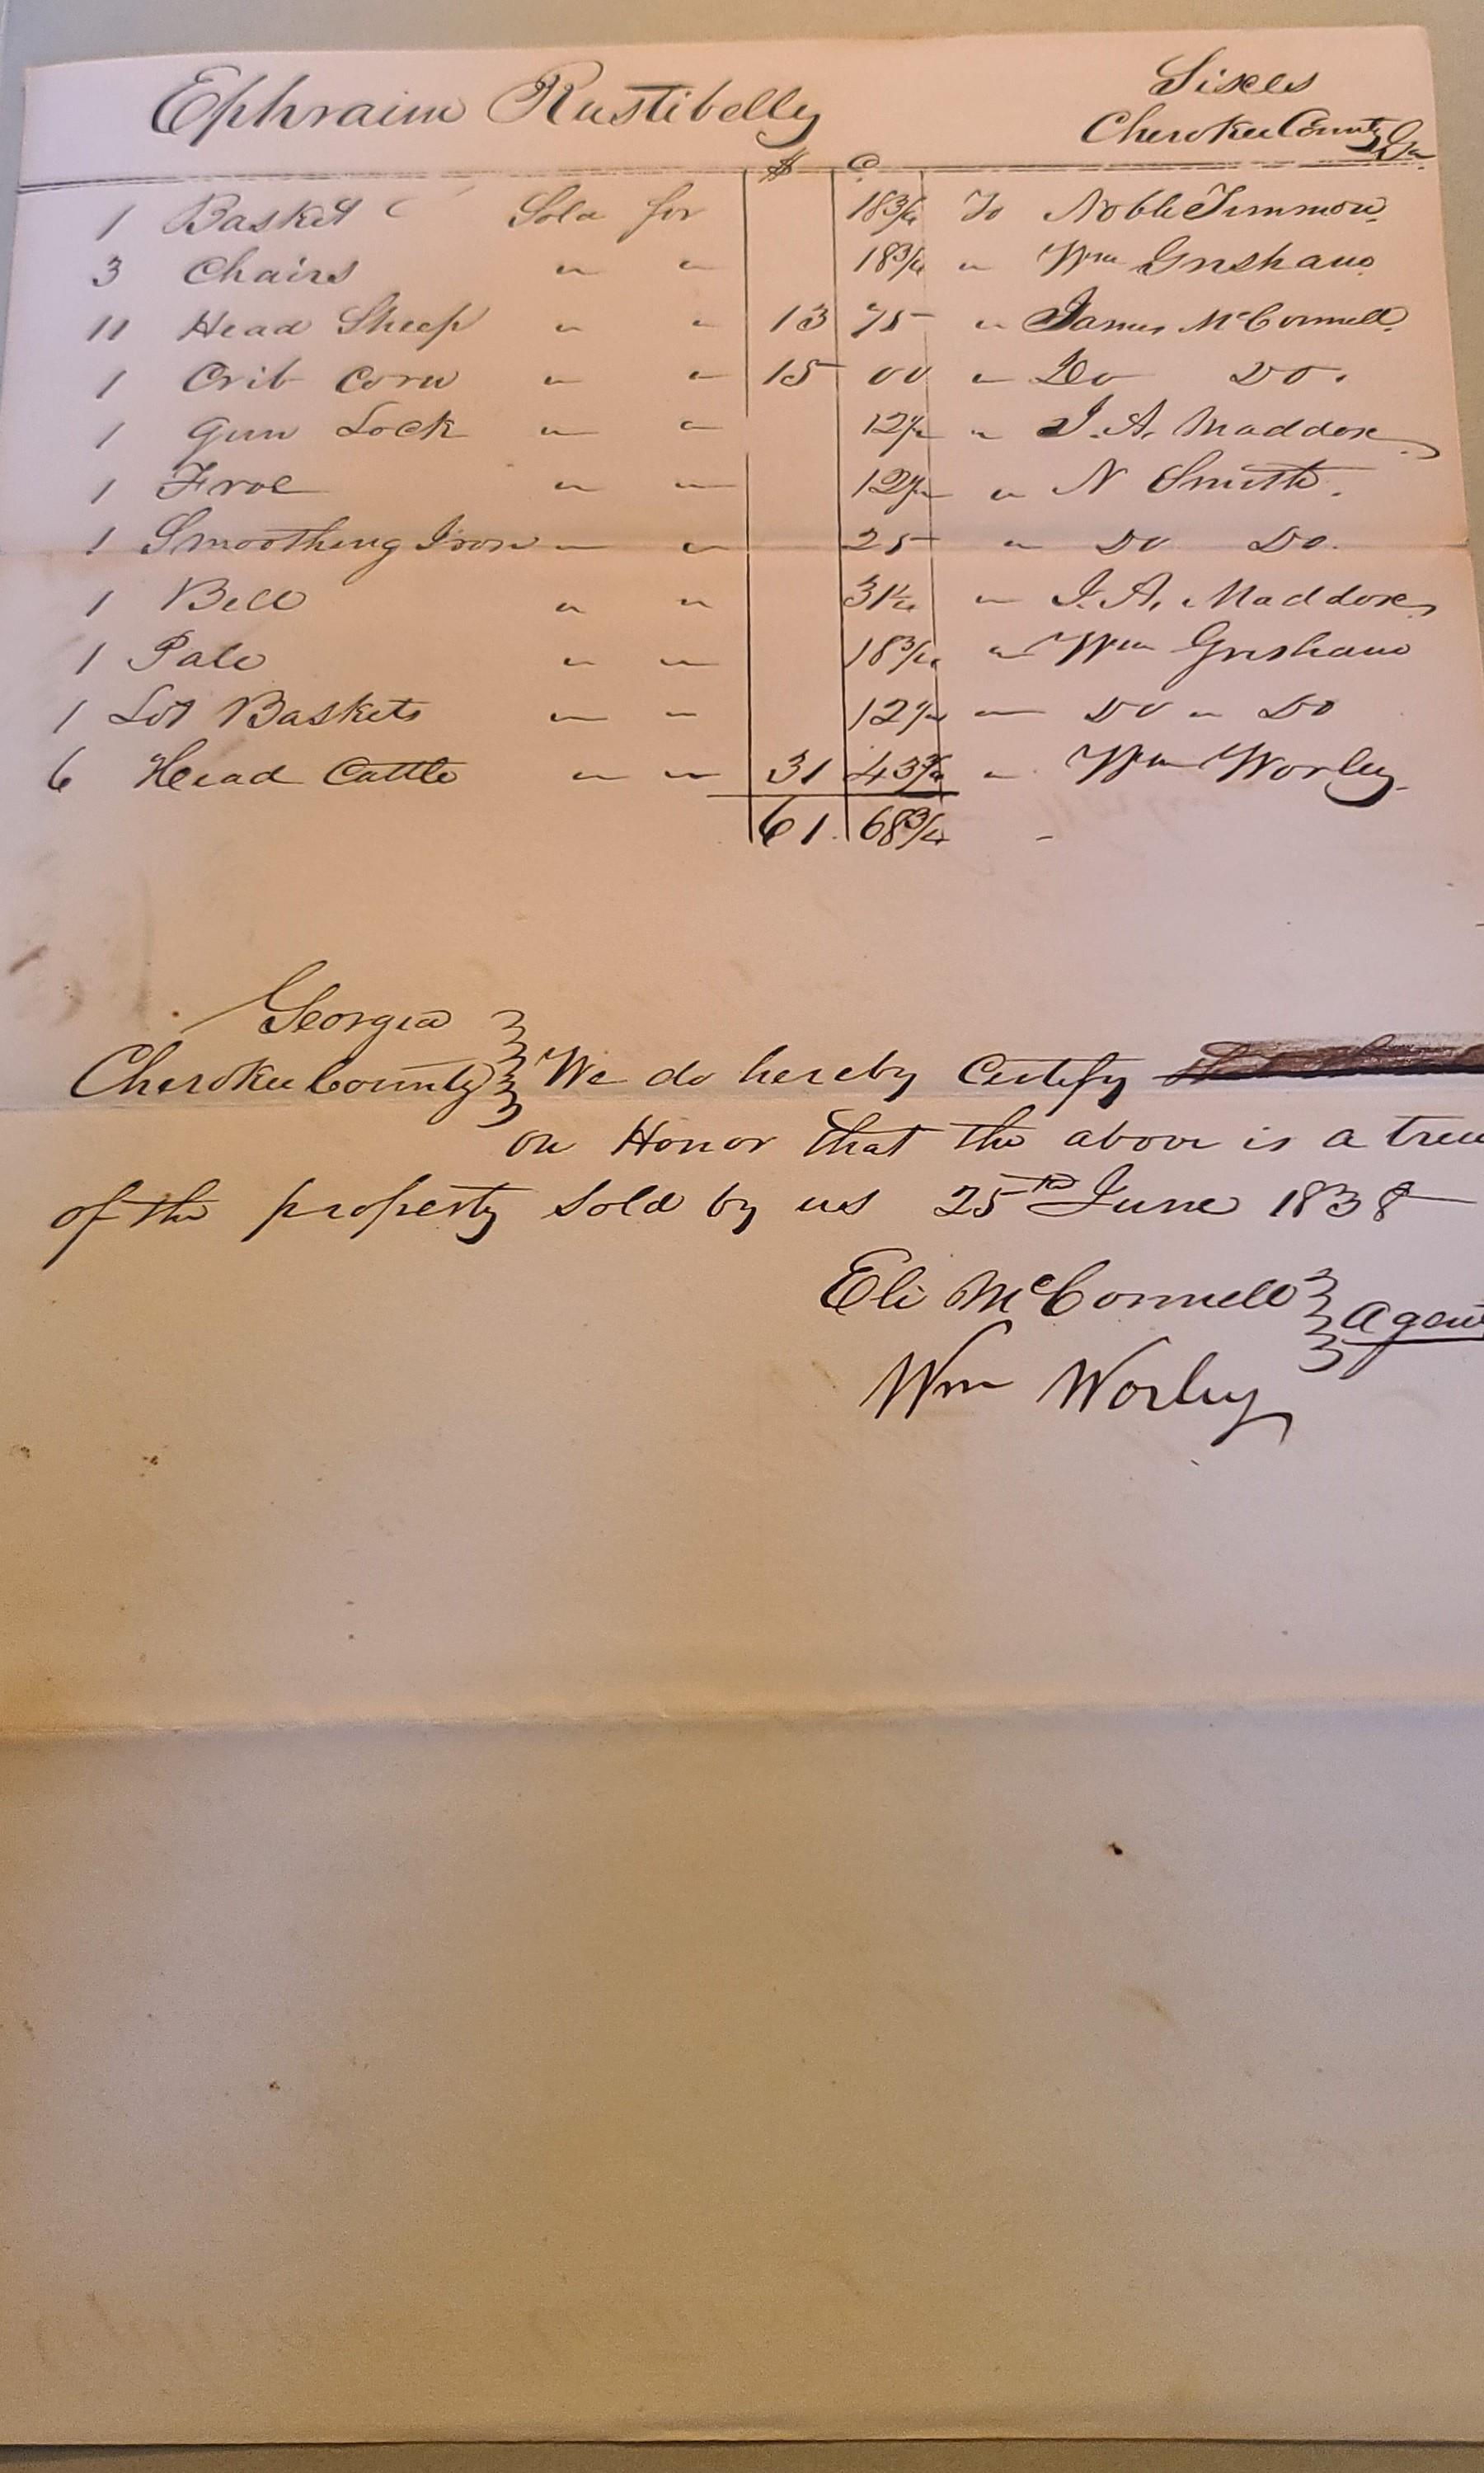 Ephraim Rustibelly Sixes
Cherokee County Ga.
$ C
1 Basket Sold for 18 3/4 To Noble Timmons
3 Chairs " " 18 3/4 " Wm Grisham
11 Head Sheep " " 13 75 " James McConnell
1 Crib Corn " " 15 00 " Do Do.
1 Gun Lock " " 12 1/2 " J. A. Maddox
1 Froe " " 12 1/2 " N Smith.
1 Smoothing Iron " " 25 " Do Do.
1 Bell " " 31 1/4 " J. A. Maddox
1 Pale " " 18 3/4 " Wm Grisham
1 Lot Baskets " " 12 1/2 " Do " Do
6 Head Cattle " " 31 43 3/4 " Wm Worley
61 68 3/4 -
Georgia
Cherokee County We do hereby Certify
on Honor that the above is a true
of the property Sold by us 25th June 1838
Eli McConnell Agen
Wm Worley